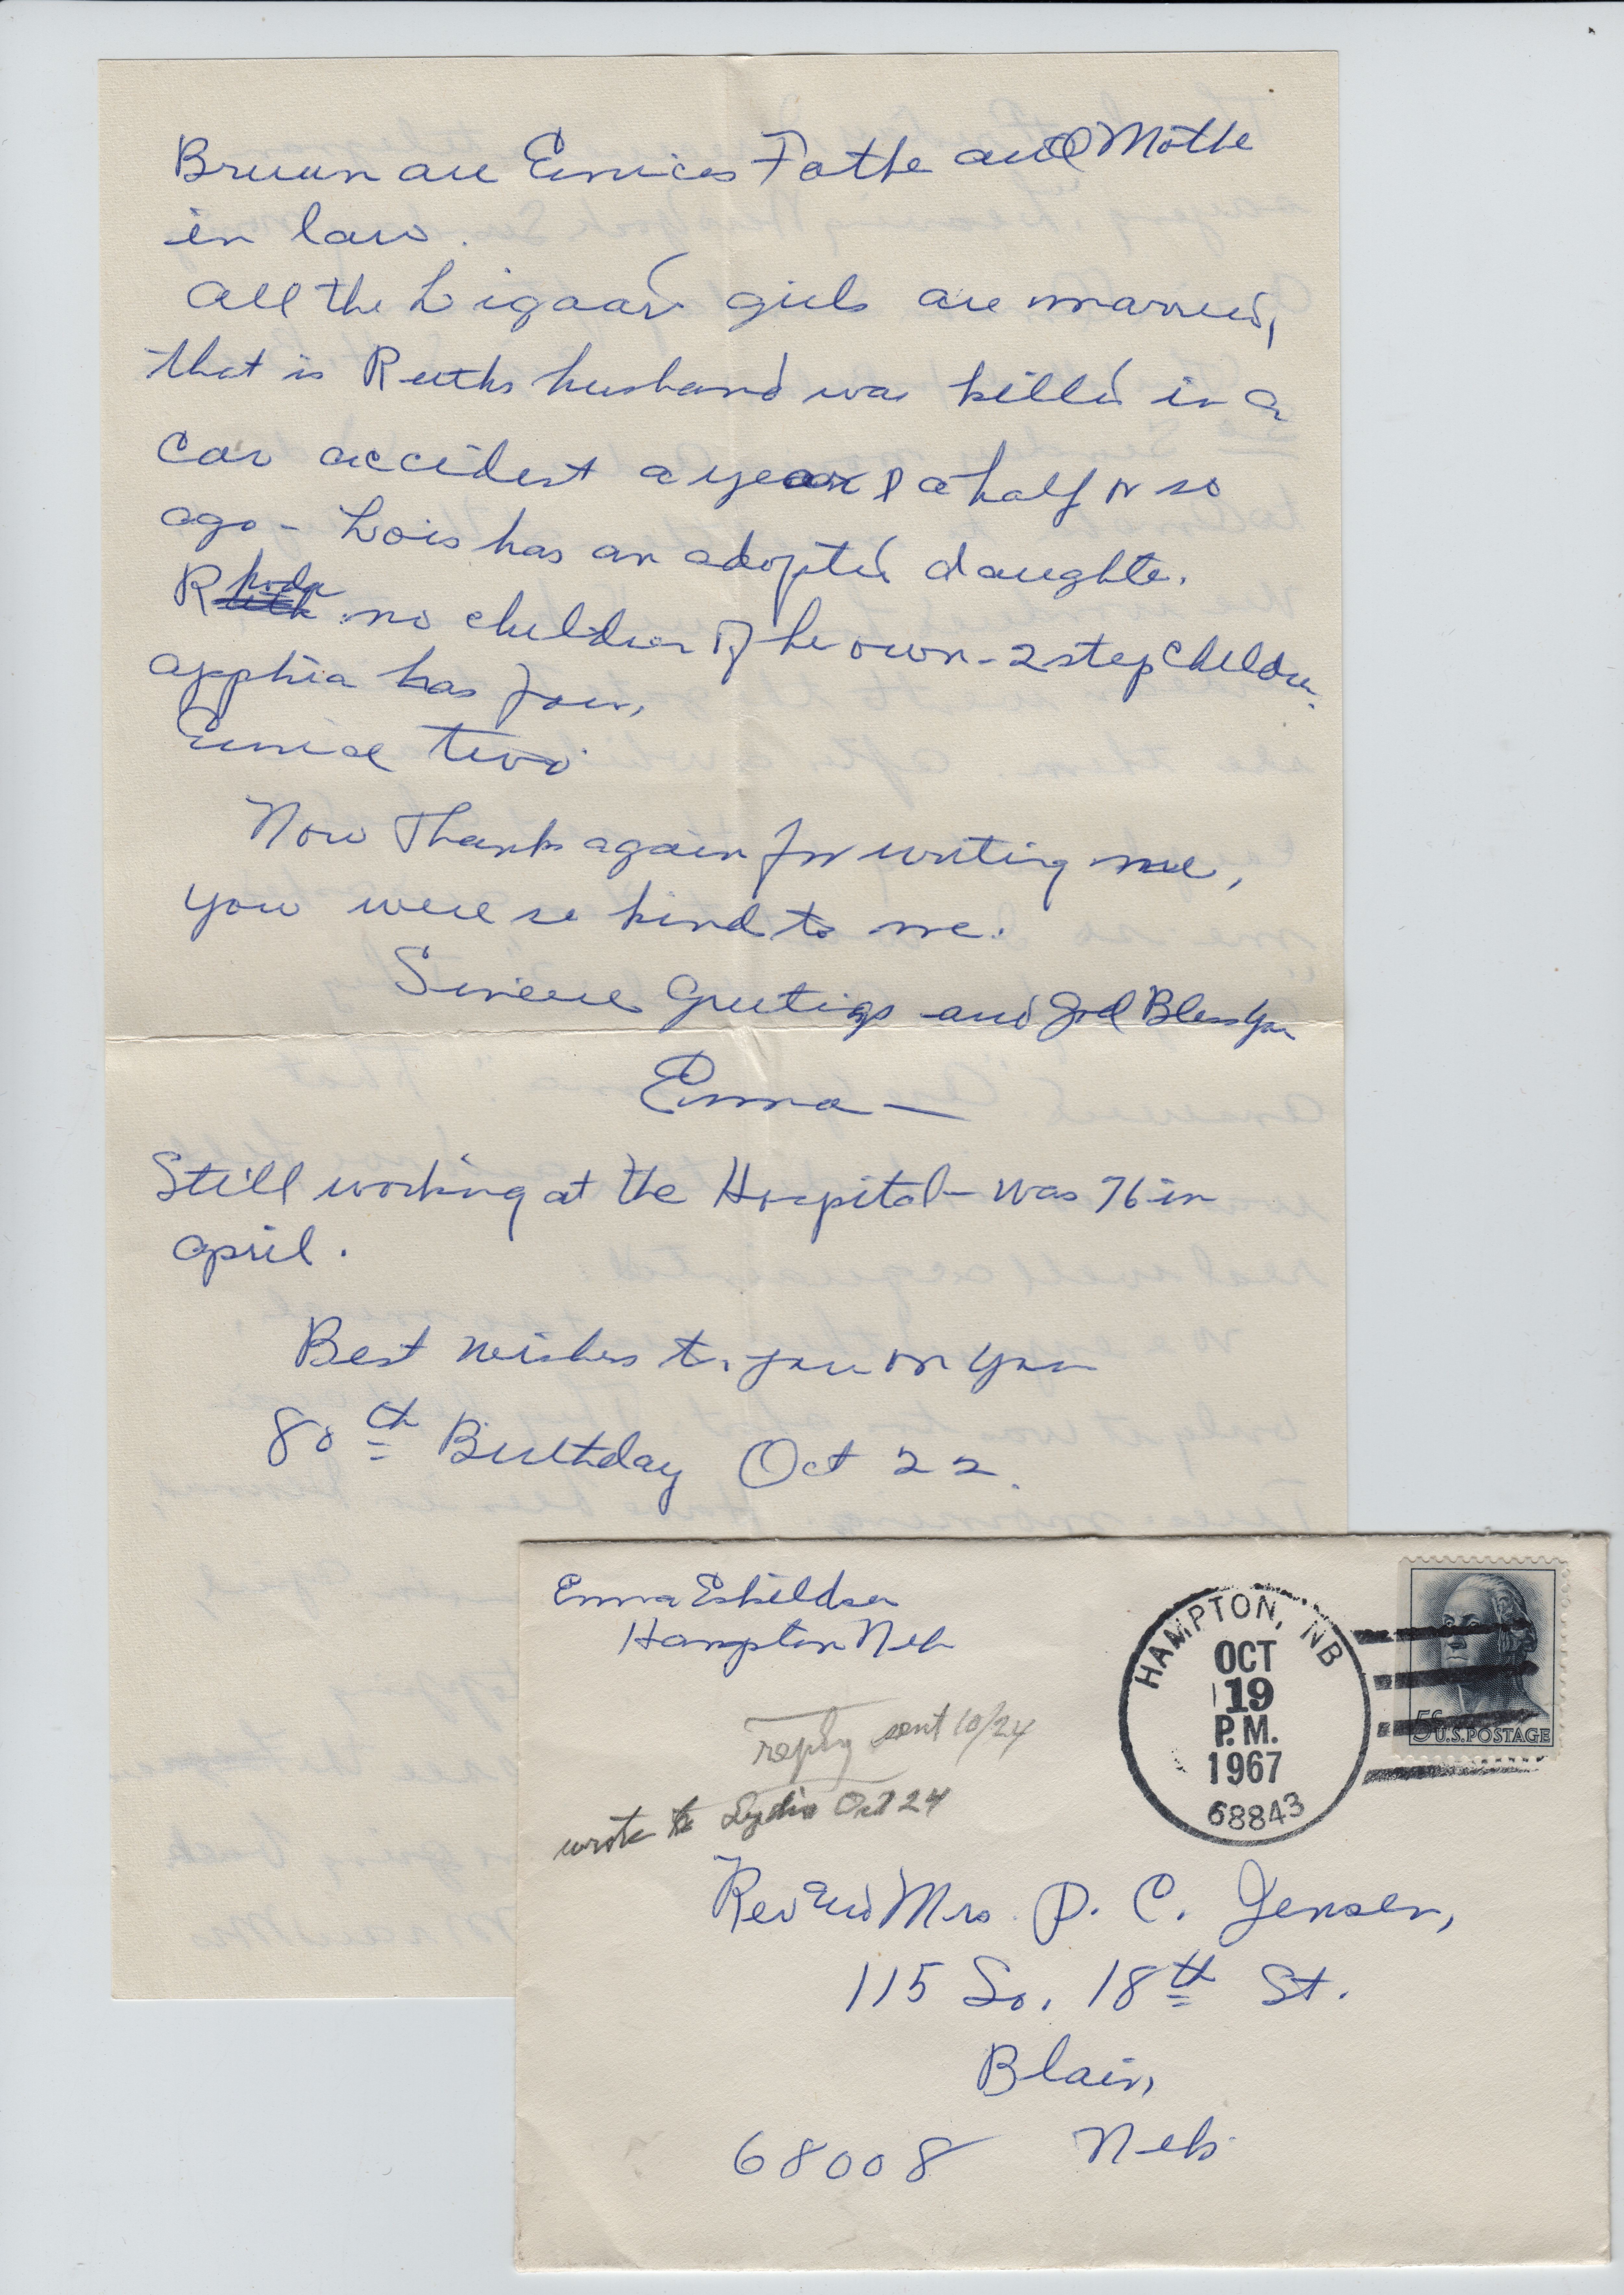 Bruun are Eunices Fathe and Mothe
in law.
All the Ligaar girls are married,
that is Ruths husband was killed in a
car accident a year & a half or so
ago - Lois has an adopted daughte.
Rhoda no children of he own - 2 step children.
Apphia has four,
Eunice two
Now Thanks again for writing me,
you were so kind to me.
Sincere Greetings and God Bless you
Emma —
Still working at the Hospital - was 76 in
April.
Best wishes to you on your
80th Birthday Oct 22.
Emma Eskildsen
Hampton Neb
HAMPTON, NB
OCT
19
P.M.
1967
68843
5¢ U.S. POSTAGE
reply sent 10/24
wrote to Lydia Oct 24
Rev and Mrs. P. C. Jensen,
115 So. 18th St.
Blair,
68008 Neb.